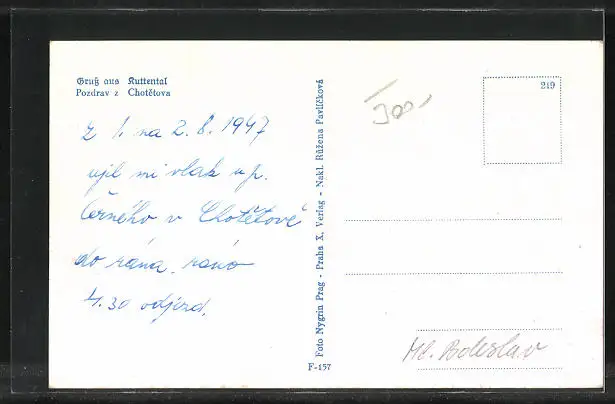 Gruß aus Kuttental
Pozdrav z Chotětova
Z 1. na 2. 8. 1947
ujel mi vlak u p.
Černého v Chotětově
do rána, ráno
4.30 odjezd.
Foto Nygrin Prag - Praha X, Verlag - Nakl. Růžena Pavlíčková
F-157
219
Ml. Boleslav